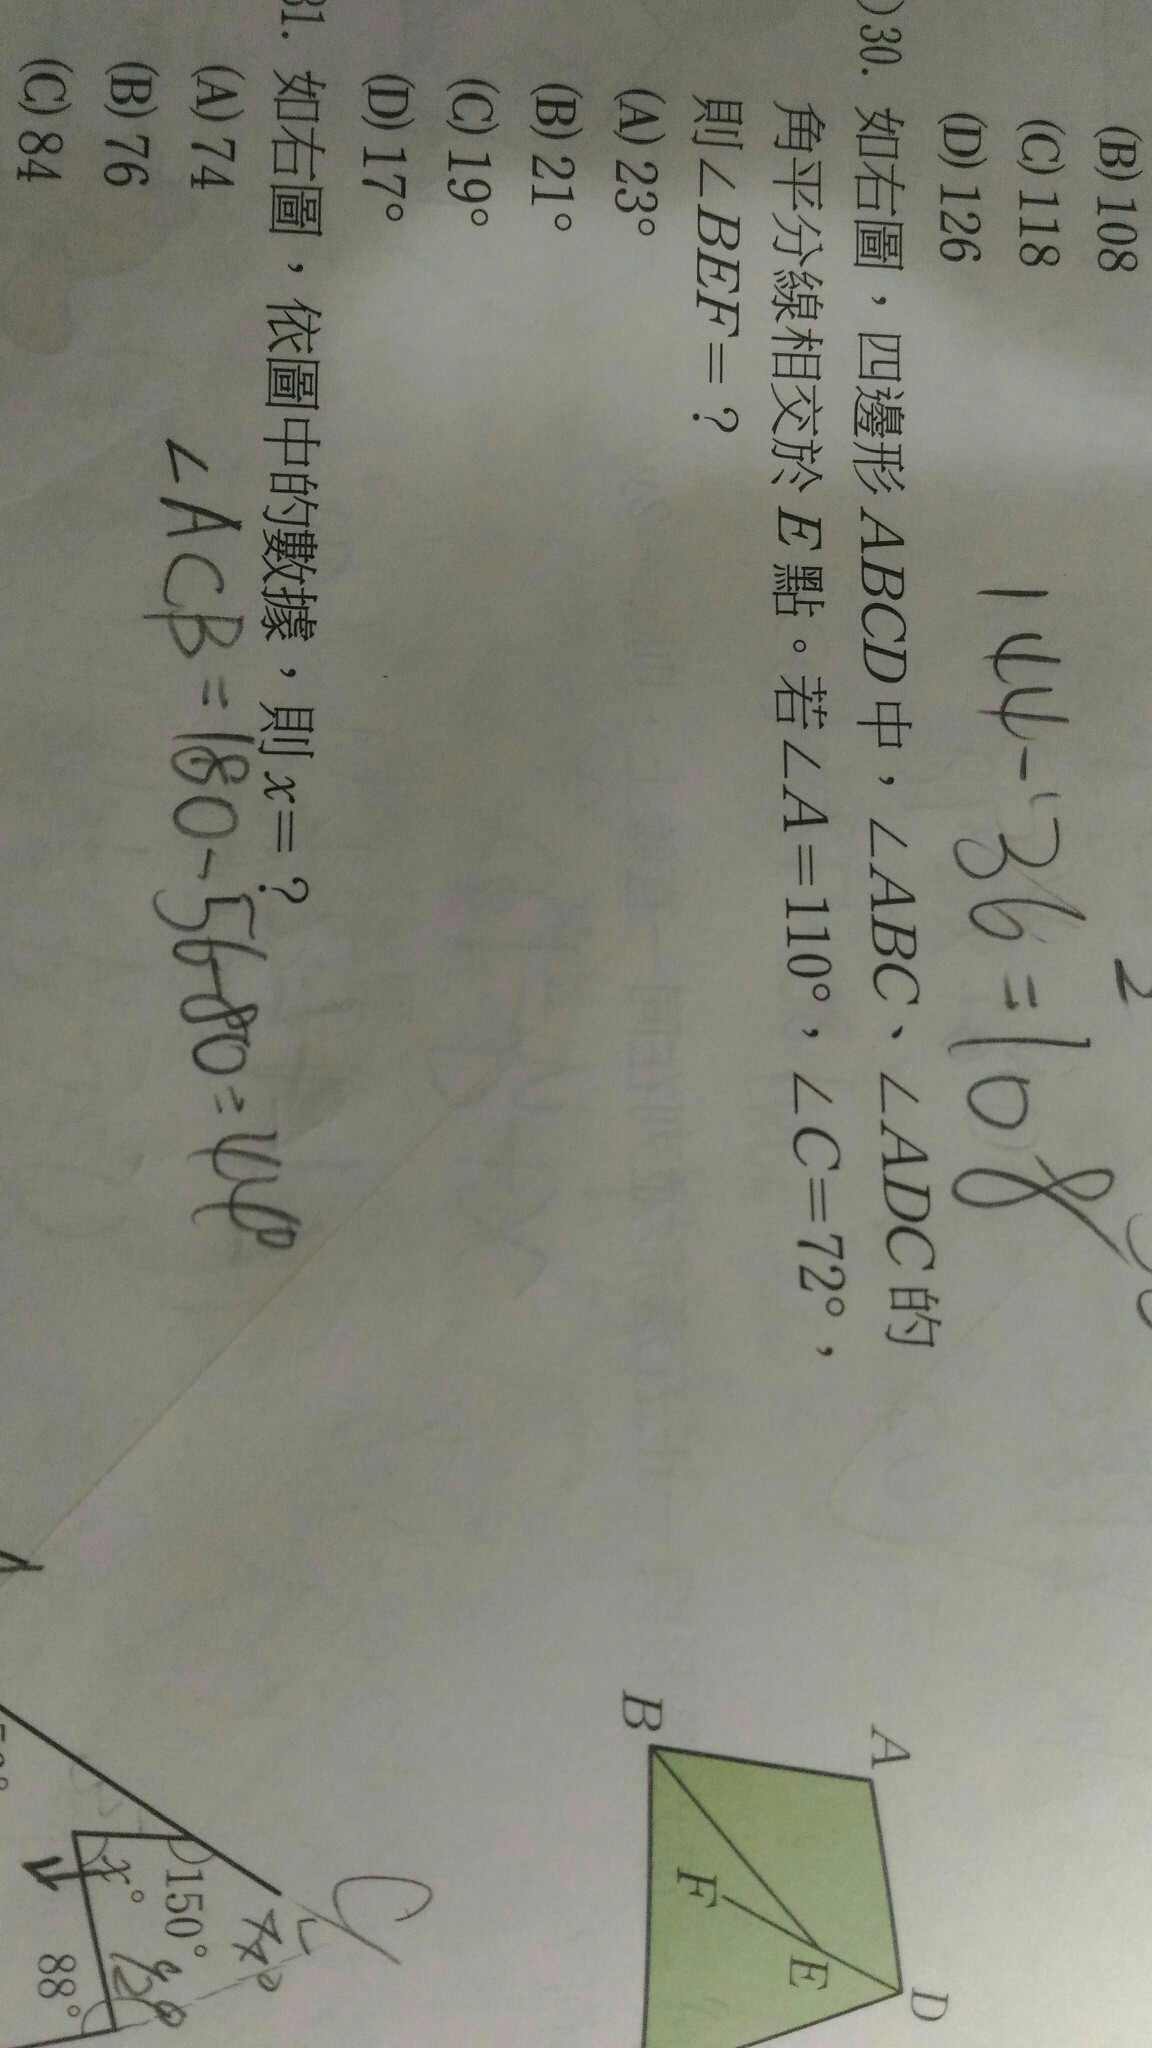 (B) 108
(C) 118
(D) 126
2
144-36=108
)30. 如右圖，四邊形 ABCD 中，∠ABC、∠ADC 的
角平分線相交於 E 點。若∠A=110°，∠C=72°，
則∠BEF=？
(A) 23°
(B) 21°
(C) 19°
(D) 17°
A
D
B
F
E
31. 如右圖，依圖中的數據，則 x=？
(A) 74
(B) 76
(C) 84
∠ACB=180-56-80=44°
C
150°
x°
88°